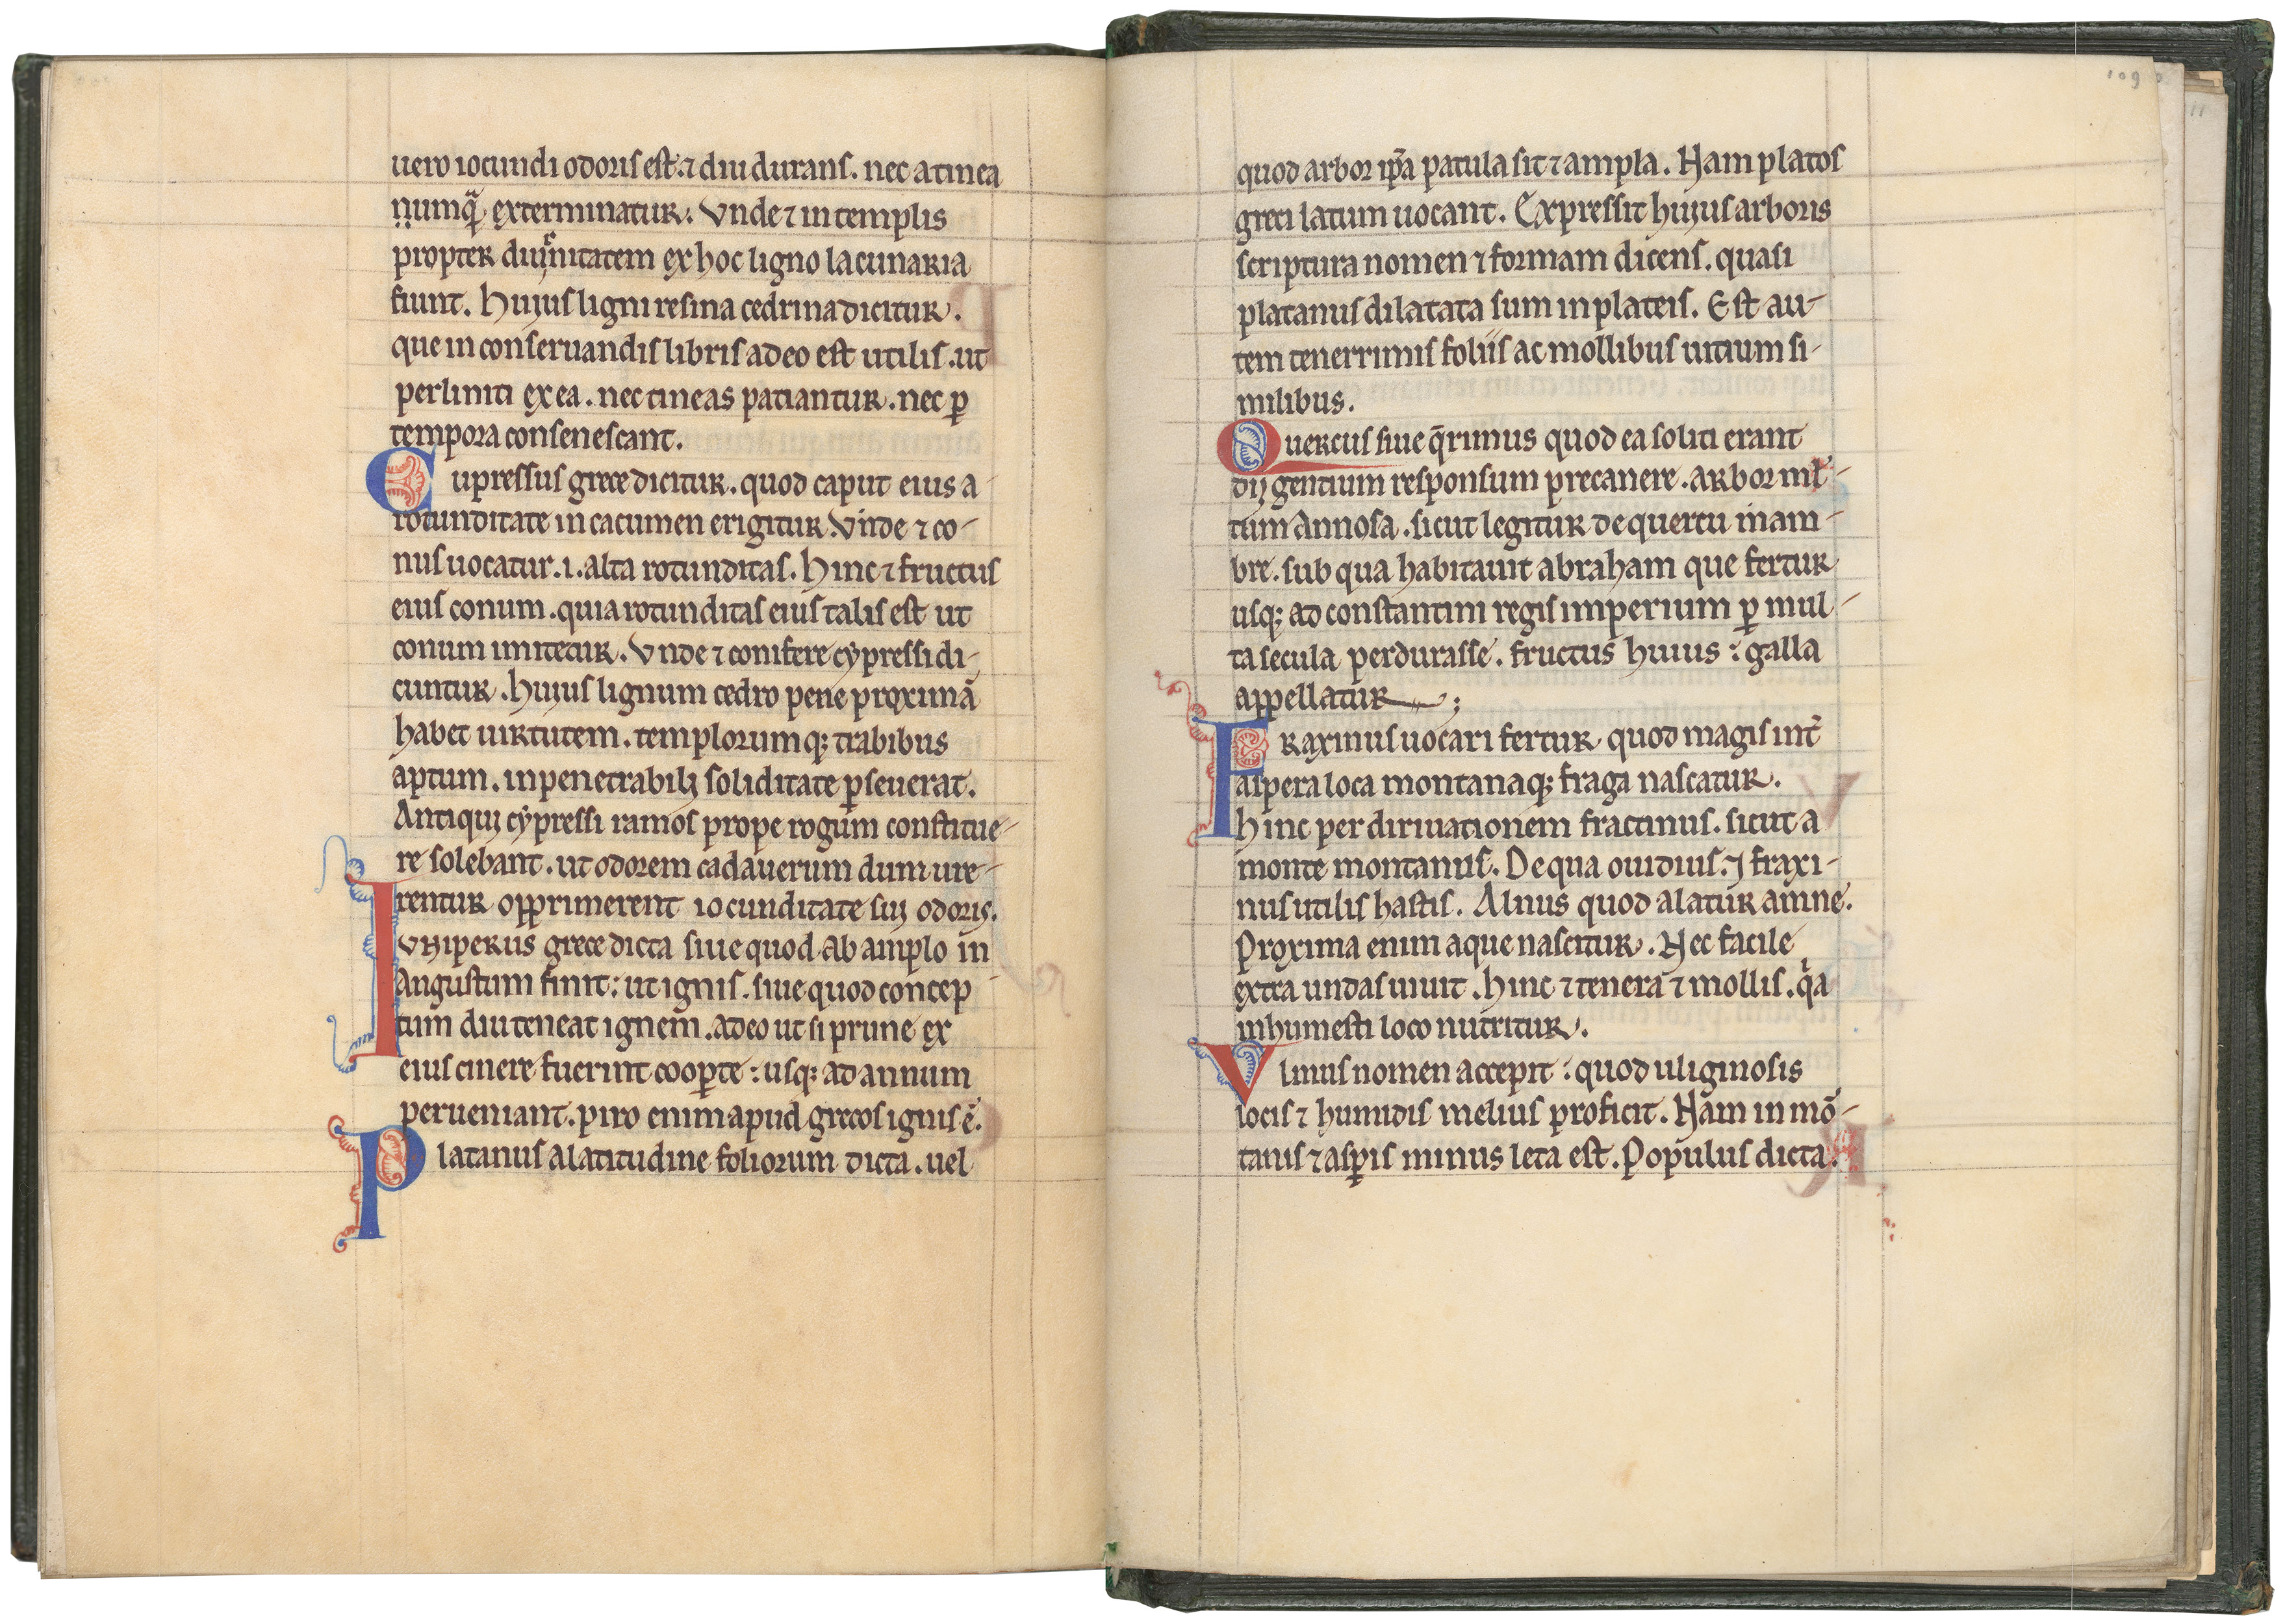 uero iocundi odoris est. ⁊ diu durans. nec a tinea
numqᷓ exterminatur. Vnde ⁊ in templis
propter diuꝉnitatem ex hoc ligno lacunaria
fiunt. Hujus ligni resina cedrina dicitur.
que in conseruandis libris adeo est utilis. ut
perliniti ex ea. nec tineas patiantur. nec ꝑ
tempora consenescant.
Cupressus grece dicitur. quod caput eius a
rotunditate in cacumen erigitur. Vnde ⁊ co-
nus uocatur .i. alta rotunditas. Hinc ⁊ fructus
eius conum. quia rotunditas eius talis est ut
conum imitetur. Vnde ⁊ conifere cypressi di-
cuntur. Hujus lignum cedro pene proximā
habet uirtutem. templorumqꝫ trabibus
aptum. inpenetrabilj soliditate ꝑseuerat.
Antiquj cypressi ramos prope rogum constitue-
re solebant. ut odorem cadauerum dum ure-
rentur opprimerent iocunditate sui odoris.
Iuniperus grece dicta siue quod ab amplo in
angustum finit: ut ignis. siue quod concep
tum diu teneat ignem. adeo ut si prune ex
eius cinere fuerint cooꝑte: usqꝫ ad annum
perueniant. piro enim apud grecos ignis ē.
Platanus a latitudine foliorum dicta. uel
109
quod arbor ip̄a patula sit ⁊ ampla. Nam platos
greci latum uocant. Expressit hujus arboris
scriptura nomen ⁊ formam dicens. quasi
platanus dilatata sum in plateis. Est au-
tem tenerrimis foliis ac mollibus uitium si-
milibus.
Quercus siue q̄rimus quod ea soliti erant
dij gentium responsum precanere. arbor ml̉-
tum annosa. sicut legitur de quercu mam-
bre. sub qua habitauit abraham que fertur
usqꝫ ad constantini regis imperium ꝑ mul-
ta secula perdurasse. fructus huius: galla
appellatur;
Fraxinus uocari fertur quod magis int̉
aspera loca montanaqꝫ fraga nascatur.
Hinc per diriuationem fractinus. sicut a
monte montanus. De qua ouidius. ⁊ fraxi-
nus utilis hastis. Alnus quod alatur amne.
Proxima enim aque nascitur. Nec facile
extra undas uiuit. Hinc ⁊ tenera ⁊ mollis. qͥa
in humesti loco nutritur.
Vlmus nomen accepit: quod uliginosis
locis ⁊ humidis melius proficit. Nam in mō-
tanis ⁊ asꝑis minus leta est. Populus dicta.